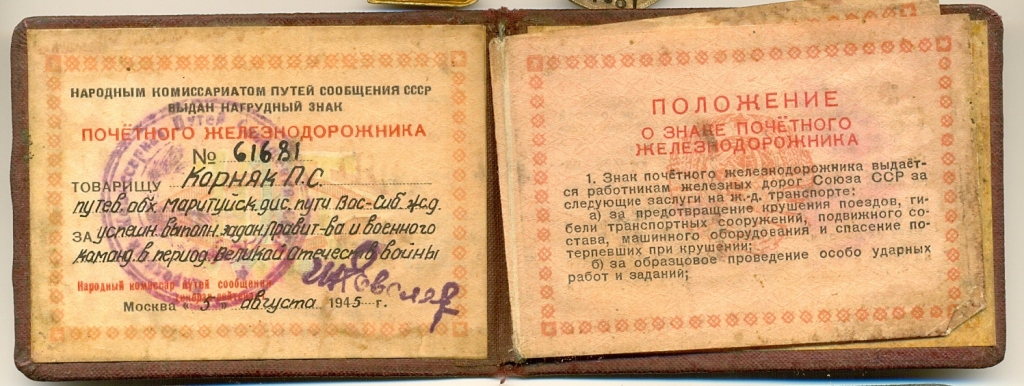 НАРОДНЫМ КОМИССАРИАТОМ ПУТЕЙ СООБЩЕНИЯ СССР
ВЫДАН НАГРУДНЫЙ ЗНАК
ПОЧЁТНОГО ЖЕЛЕЗНОДОРОЖНИКА
№ 61681
ТОВАРИЩУ Корняк П.С.
путев. обх. маритуйск. дис. пути Вос-Сиб ж.д.
ЗА успешн. выполн. задан. Правит-ва и военного
команд. в период. Великой Отечеств. войны
Народный комиссар путей сообщения
Москва „5" августа 1945 г.
ПОЛОЖЕНИЕ
О ЗНАКЕ ПОЧЁТНОГО
ЖЕЛЕЗНОДОРОЖНИКА
1. Знак почётного железнодорожника выдаёт-
ся работникам железных дорог Союза ССР за
следующие заслуги на ж.-д. транспорте:
а) за предотвращение крушения поездов, ги-
бели транспортных сооружений, подвижного со-
става, машинного оборудования и спасение по-
терпевших при крушении;
б) за образцовое проведение особо ударных
работ и заданий;